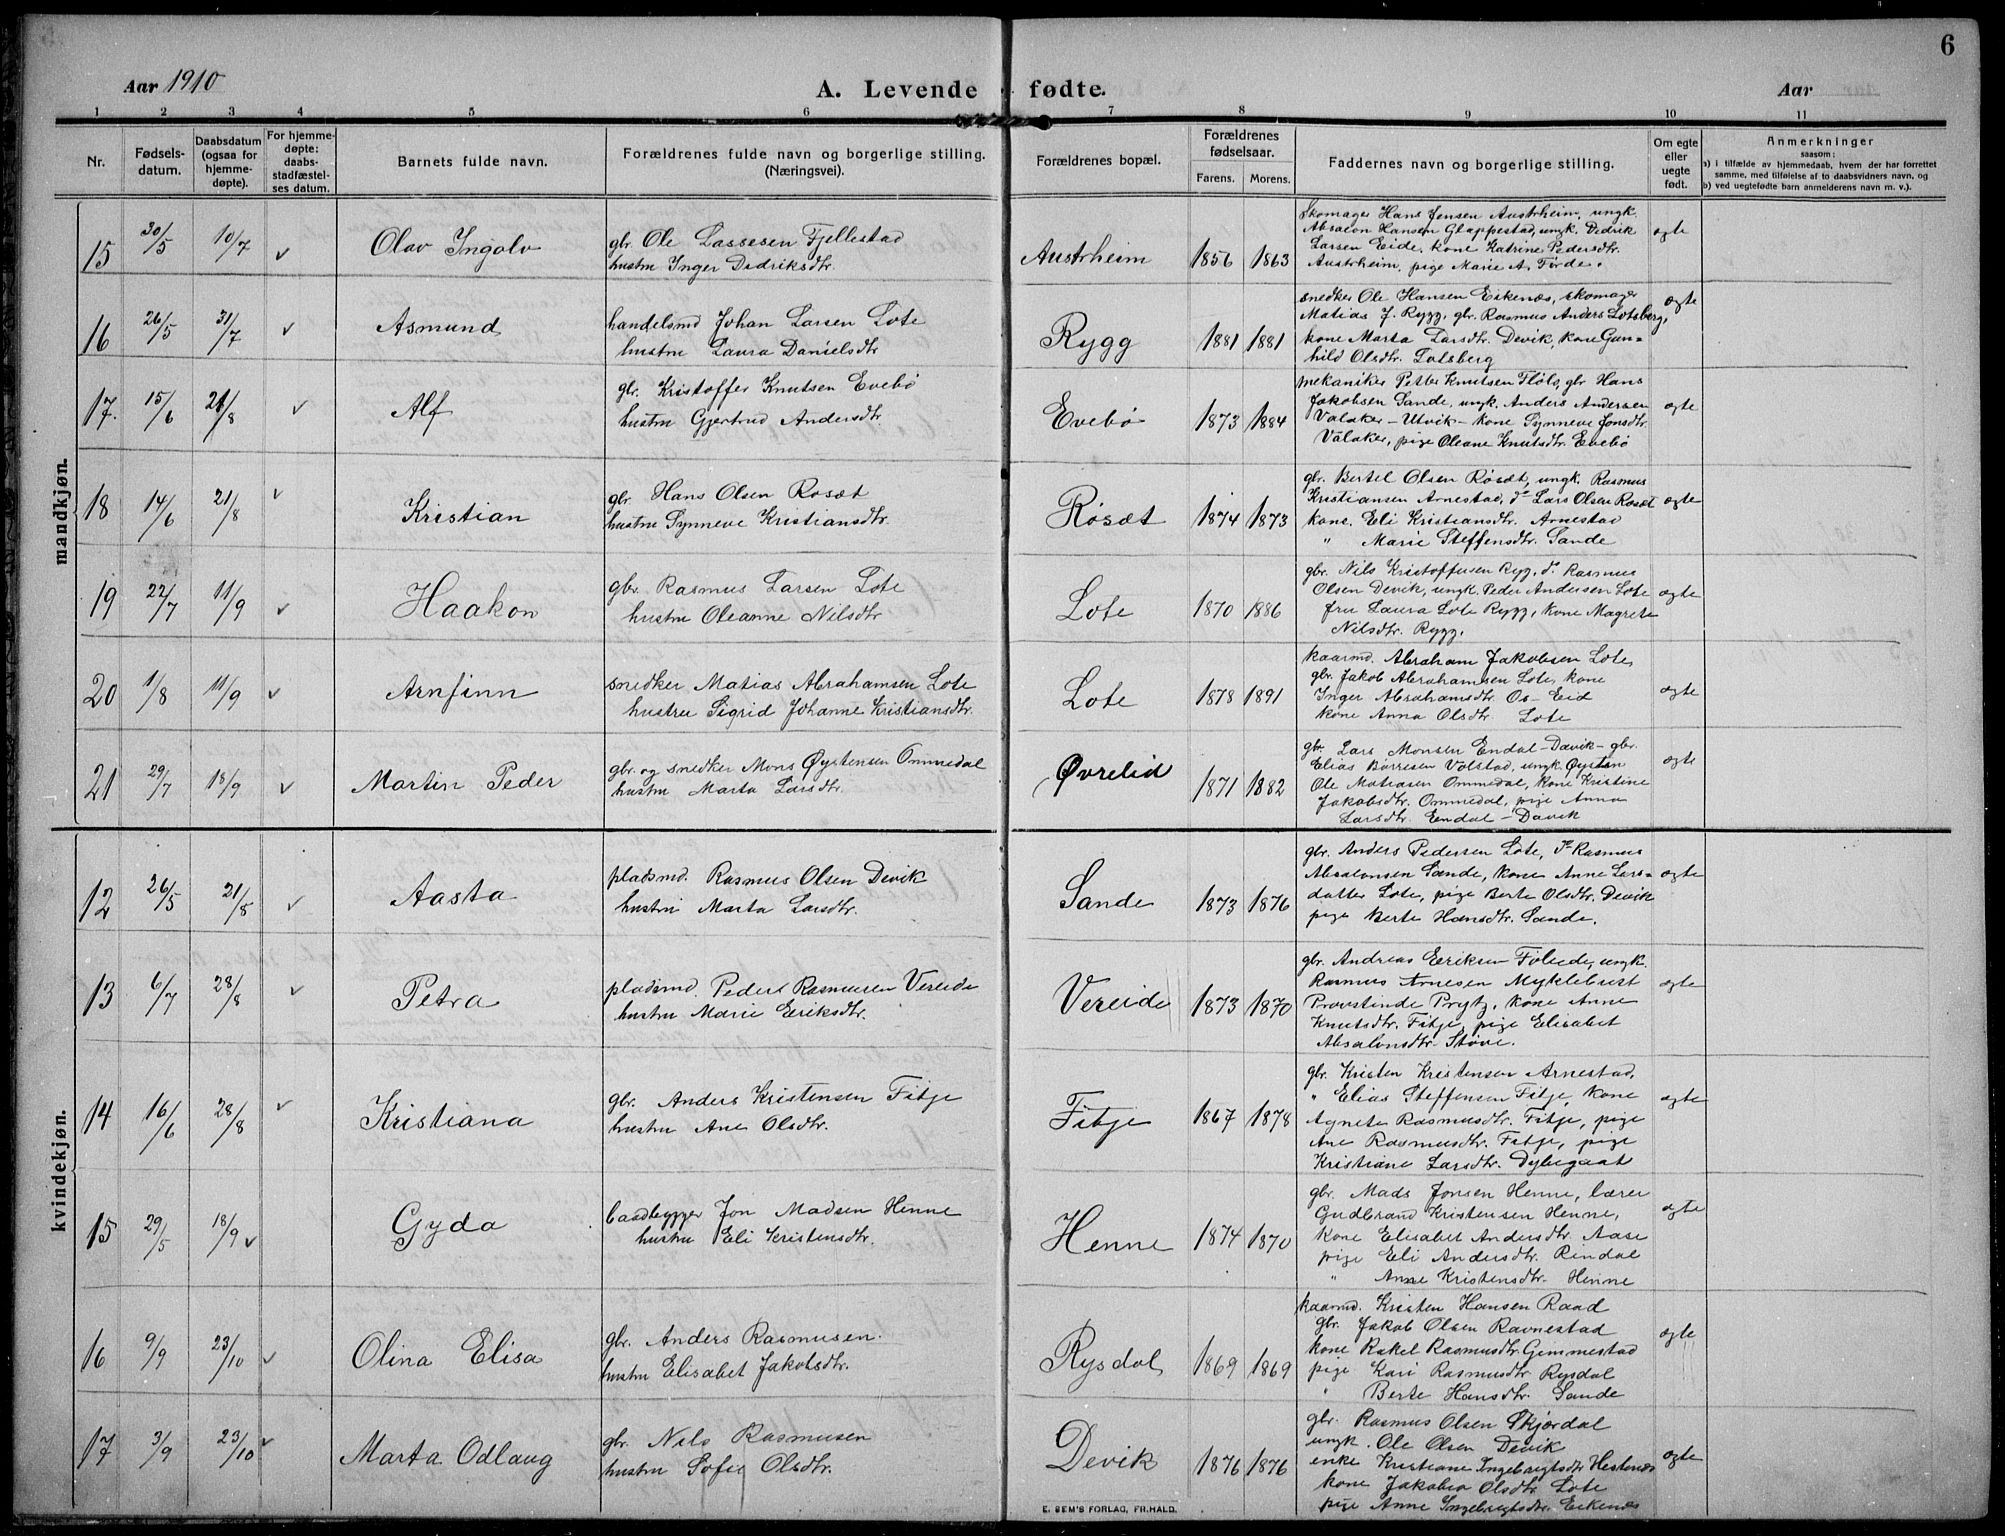 6
Aar 1910
A. Levende fødte.
Aar
1 2 3 4 5 6 7 8 9 10 11
Nr.
Fødsels-
datum.
Daabsdatum
(ogsaa for
hjemme-
døpte).
For hjemme-
døpte:
daabs-
stadfæstel-
ses datum.
Barnets fulde navn.
Forældrenes fulde navn og borgerlige stilling.
(Næringsvei).
Forældrenes bopæl.
Forældrenes
fødselsaar.
Farens. Morens.
Faddernes navn og borgerlige stilling.
Om egte
eller
uegte
født.
Anmerkninger
saasom:
a) i tilfælde av hjemmedaab, hvem der har forrettet
samme, med tilføielse af to daabsvidners navn, og
b) ved uegtefødte barn anmelderens navn m. v.).
mandkjøn.
15 30/5 10/7 ✓ Olav Ingolv
gbr. Ole Lassesen Fjellestad
hustru Inger Didriksdtr.
Austrheim 1856 1863
Skomager Hans Jensen Austrheim, ungk.
Absalon Hansen Glappestad, ungk. Didrik
Larsen Eide, kone Katrine Pedersdtr.
Austrheim, pige Marie A. Førde.
egte
16 26/5 31/7 ✓ Asmund
handelsmd Johan Larsen Lote
hustru Laura Danielsdtr
Rygg 1881 1881
snedker Ole Hansen Eikenæs, skomager
Matias J. Rygg, gbr. Rasmus Anders Lotsberg,
kone Marta Larsdtr. Devik, kone Gun=
hild Olsdtr. Lotsberg
egte
17. 15/6 21/8 ✓ Alf
gbr. Kristoffer Knutsen Evebø
hustru Gjertrud Andersdtr.
Evebø 1873 1884
mekaniker Petter Knutsen Flølo, gbr Hans
Jakobsen Sande, ungk. Anders Andersen
Valaker - Utvik - kone Synneve Jonsdtr.
Valaker, pige Oleane Knutsdtr. Evebø
egte
18 14/6 21/8 ✓ Kristian
gbr. Hans Olsen Rosæt
hustru Synneve Kristiansdtr.
Røsæt 1874 1873
gbr. Bertel Olsen Røsæt, ungk. Rasmus
Kristiansen Arnestad, do Lars Olsen Rosæt
kone. Eli Kristiansdtr. Arnestad
" Marie Steffensdtr. Sande
egte
19 22/7 11/9 ✓ Haakon
gbr. Rasmus Larsen Lote
hustru Oleanne Nilsdtr
Lote 1870 1886
gbr. Nils Kristoffersen Ryg, do. Rasmus
Olsen Devik, ungk. Peder Andersen Lote
fru Laura Lote Rygg, kone Magrete
Nilsdtr. Rygg,
egte
20 1/8 11/9 ✓ Arnfinn
snedker Matias Abrahamsen Lote
hustru Sigrid Johanne Kristiansdtr.
Lote 1878 1891
kaarmd. Abraham Jakobsen Lote,
gbr. Jakob Abrahamsen Lote, kone
Inger Abrahamsdtr Os - Eid
kone Anna Olsdtr. Lote
egte
21 29/7 18/9 ✓ Martin Peder
gbr. og snedker Mons Øystensen Ommedal
hustru Marta Larsdtr.
Øvrelid 1871 1882
gbr. Lars Monsen Endal - Davik - gbr.
Elias Børresen Volstad, ungk. Øysten
Ole Matiasen Ommedal, kone Kristine
Jakobsdtr. Ommedal, pige Anna
Larsdtr. Endal - Davik
egte
kvindekjøn.
12 26/5 21/8 ✓ Aasta
pladsmd. Rasmus Olsen Devik
hustru Marta Larsdtr.
Sande 1873 1876
gbr. Anders Pedersen Lote, do Rasmus
Absalonsen Sande, kone Anne Lars=
datter Lote, pige Berte Olsdtr. Devik
pige Berte Hansdtr. Sande.
egte
13 6/7 28/8 ✓ Petra
pladsmd. Peder Rasmusen Vereide
hustru Marie Eriksdtr.
Vereide 1873 1870
gbr. Andreas Eriksen Føleide, ungk.
Rasmus Arnesen Myklebust
Provstinde Prytz, kone Anne
Knutsdtr. Fitje, pige Elisabet
Absalonsdtr. Støve.
egte
14 16/6 28/8 ✓ Kristiana
gbr. Anders Kristensen Fitje
hustru Ane Olsdtr.
Fitje 1867 1878
gbr. Kristen Kristensen Arnestad,
" Elias Steffensen Fitje, kone
Agnete Rasmusdtr. Fitje, pige
Ane Rasmusdtr. Fitje, pige
Kristiane Larsdtr. Dybegaat
egte
15 29/5 18/9 ✓ Gyda
baadbygger Jon Madsen Henne
hustru Eli Kristensdtr.
Henne 1874 1870
gbr. Mads Jonsen Henne, lærer
Gudbrand Kristensen Henne,
kone Elisabet Andersdtr Aase
pige Eli Andersdtr. Rindal
" Anne Kristensdtr. Henne
egte
16 9/9 23/10 ✓ Olina Elisa
gbr. Anders Rasmusen.
hustru Elisabet Jakobsdtr.
Rysdal 1869 1869
kaarmd. Kristen Hansen Raad
gbr. Jakob Olsen Ravnestad
kone Rakel Rasmusdtr Gimmestad
pige Kari Rasmusdtr Rysdal
" Berte Hansdtr. Sande
egte
17 3/9 23/10 ✓ Marta Odlaug
gbr. Nils Rasmusen
hustru Sofie Olsdtr.
Devik 1876 1876
gbr. Rasmus Olsen Skjørdal
ungk. Ole Olsen Devik
enke Kristiane Ingebrigtsdtr Hestenæs
kone Jakobea Olsdtr Lote
pige Anne Ingebrigtsdtr. Eikenæs
egte
E. SEM'S FORLAG, FR.HALD.